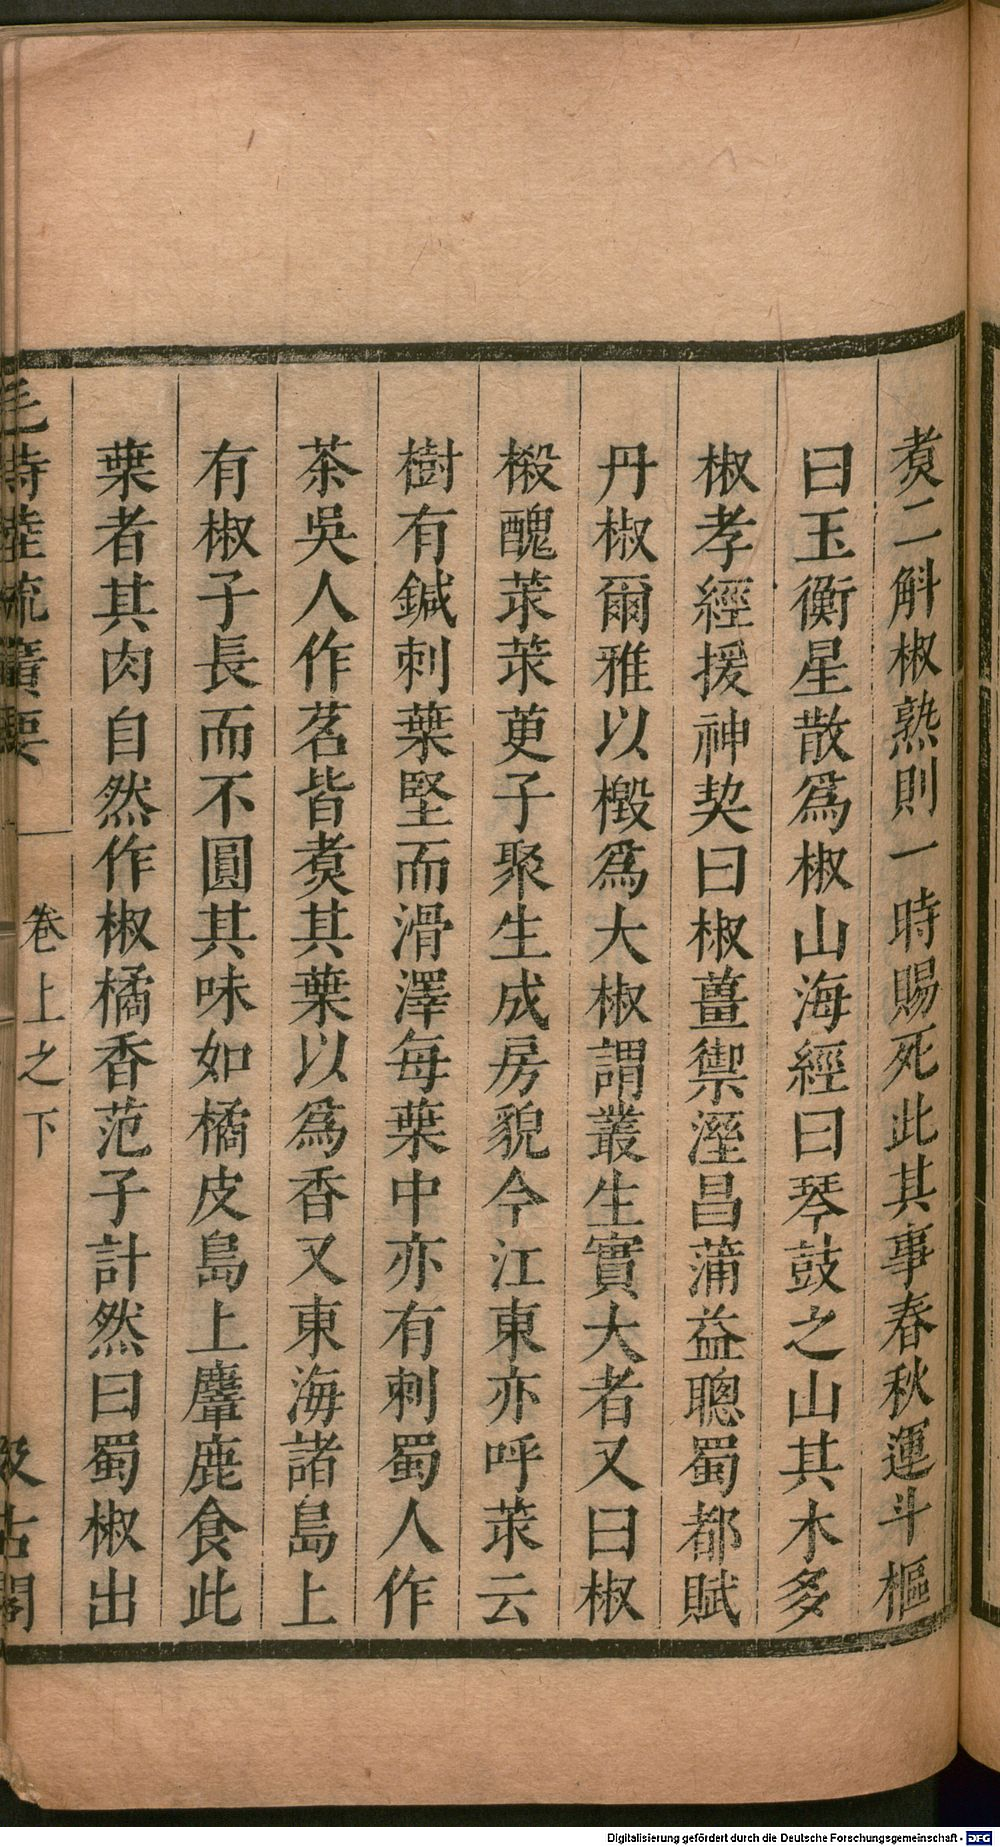 煑二斛椒熟則一時賜死此其事春秋運斗樞
曰玉衡星散爲椒山海經曰琴鼓之山其木多
椒孝經援神契曰椒薑禦溼昌蒲益聰蜀都賦
丹椒爾雅以檓爲大椒謂叢生實大者又曰椒
樧醜莍莍茰子聚生成房貌今江東亦呼莍云
樹有鍼刺葉堅而滑澤每葉中亦有刺蜀人作
茶吳人作茗皆煑其葉以爲香又東海諸島上
有椒子長而不圓其味如橘皮島上麞鹿食此
葉者其肉自然作椒橘香范子計然曰蜀椒出
毛詩陸疏廣要 卷上之下 汲古閣
Digitalisierung gefördert durch die Deutsche Forschungsgemeinschaft - DFG